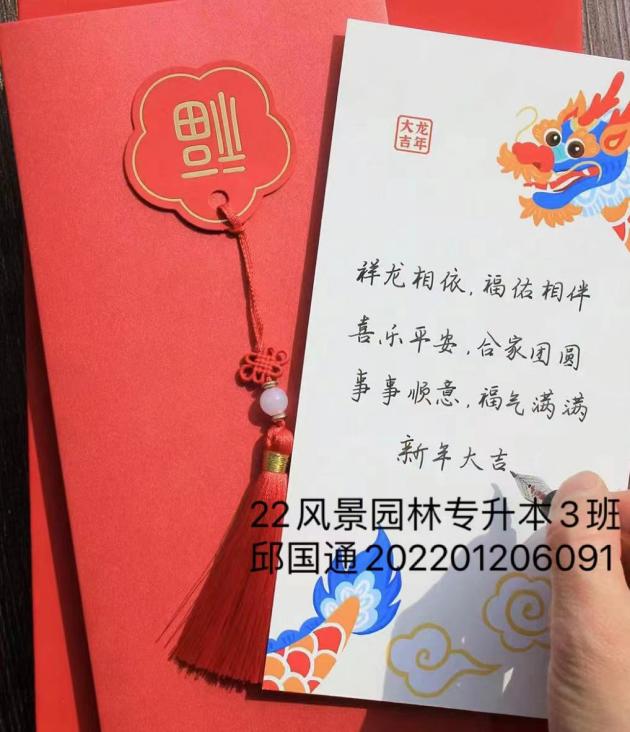 福
大龙
吉年
祥龙相依，福佑相伴
喜乐平安，合家团圆
事事顺意，福气满满
新年大吉
22风景园林专升本3班
邱国通202201206091